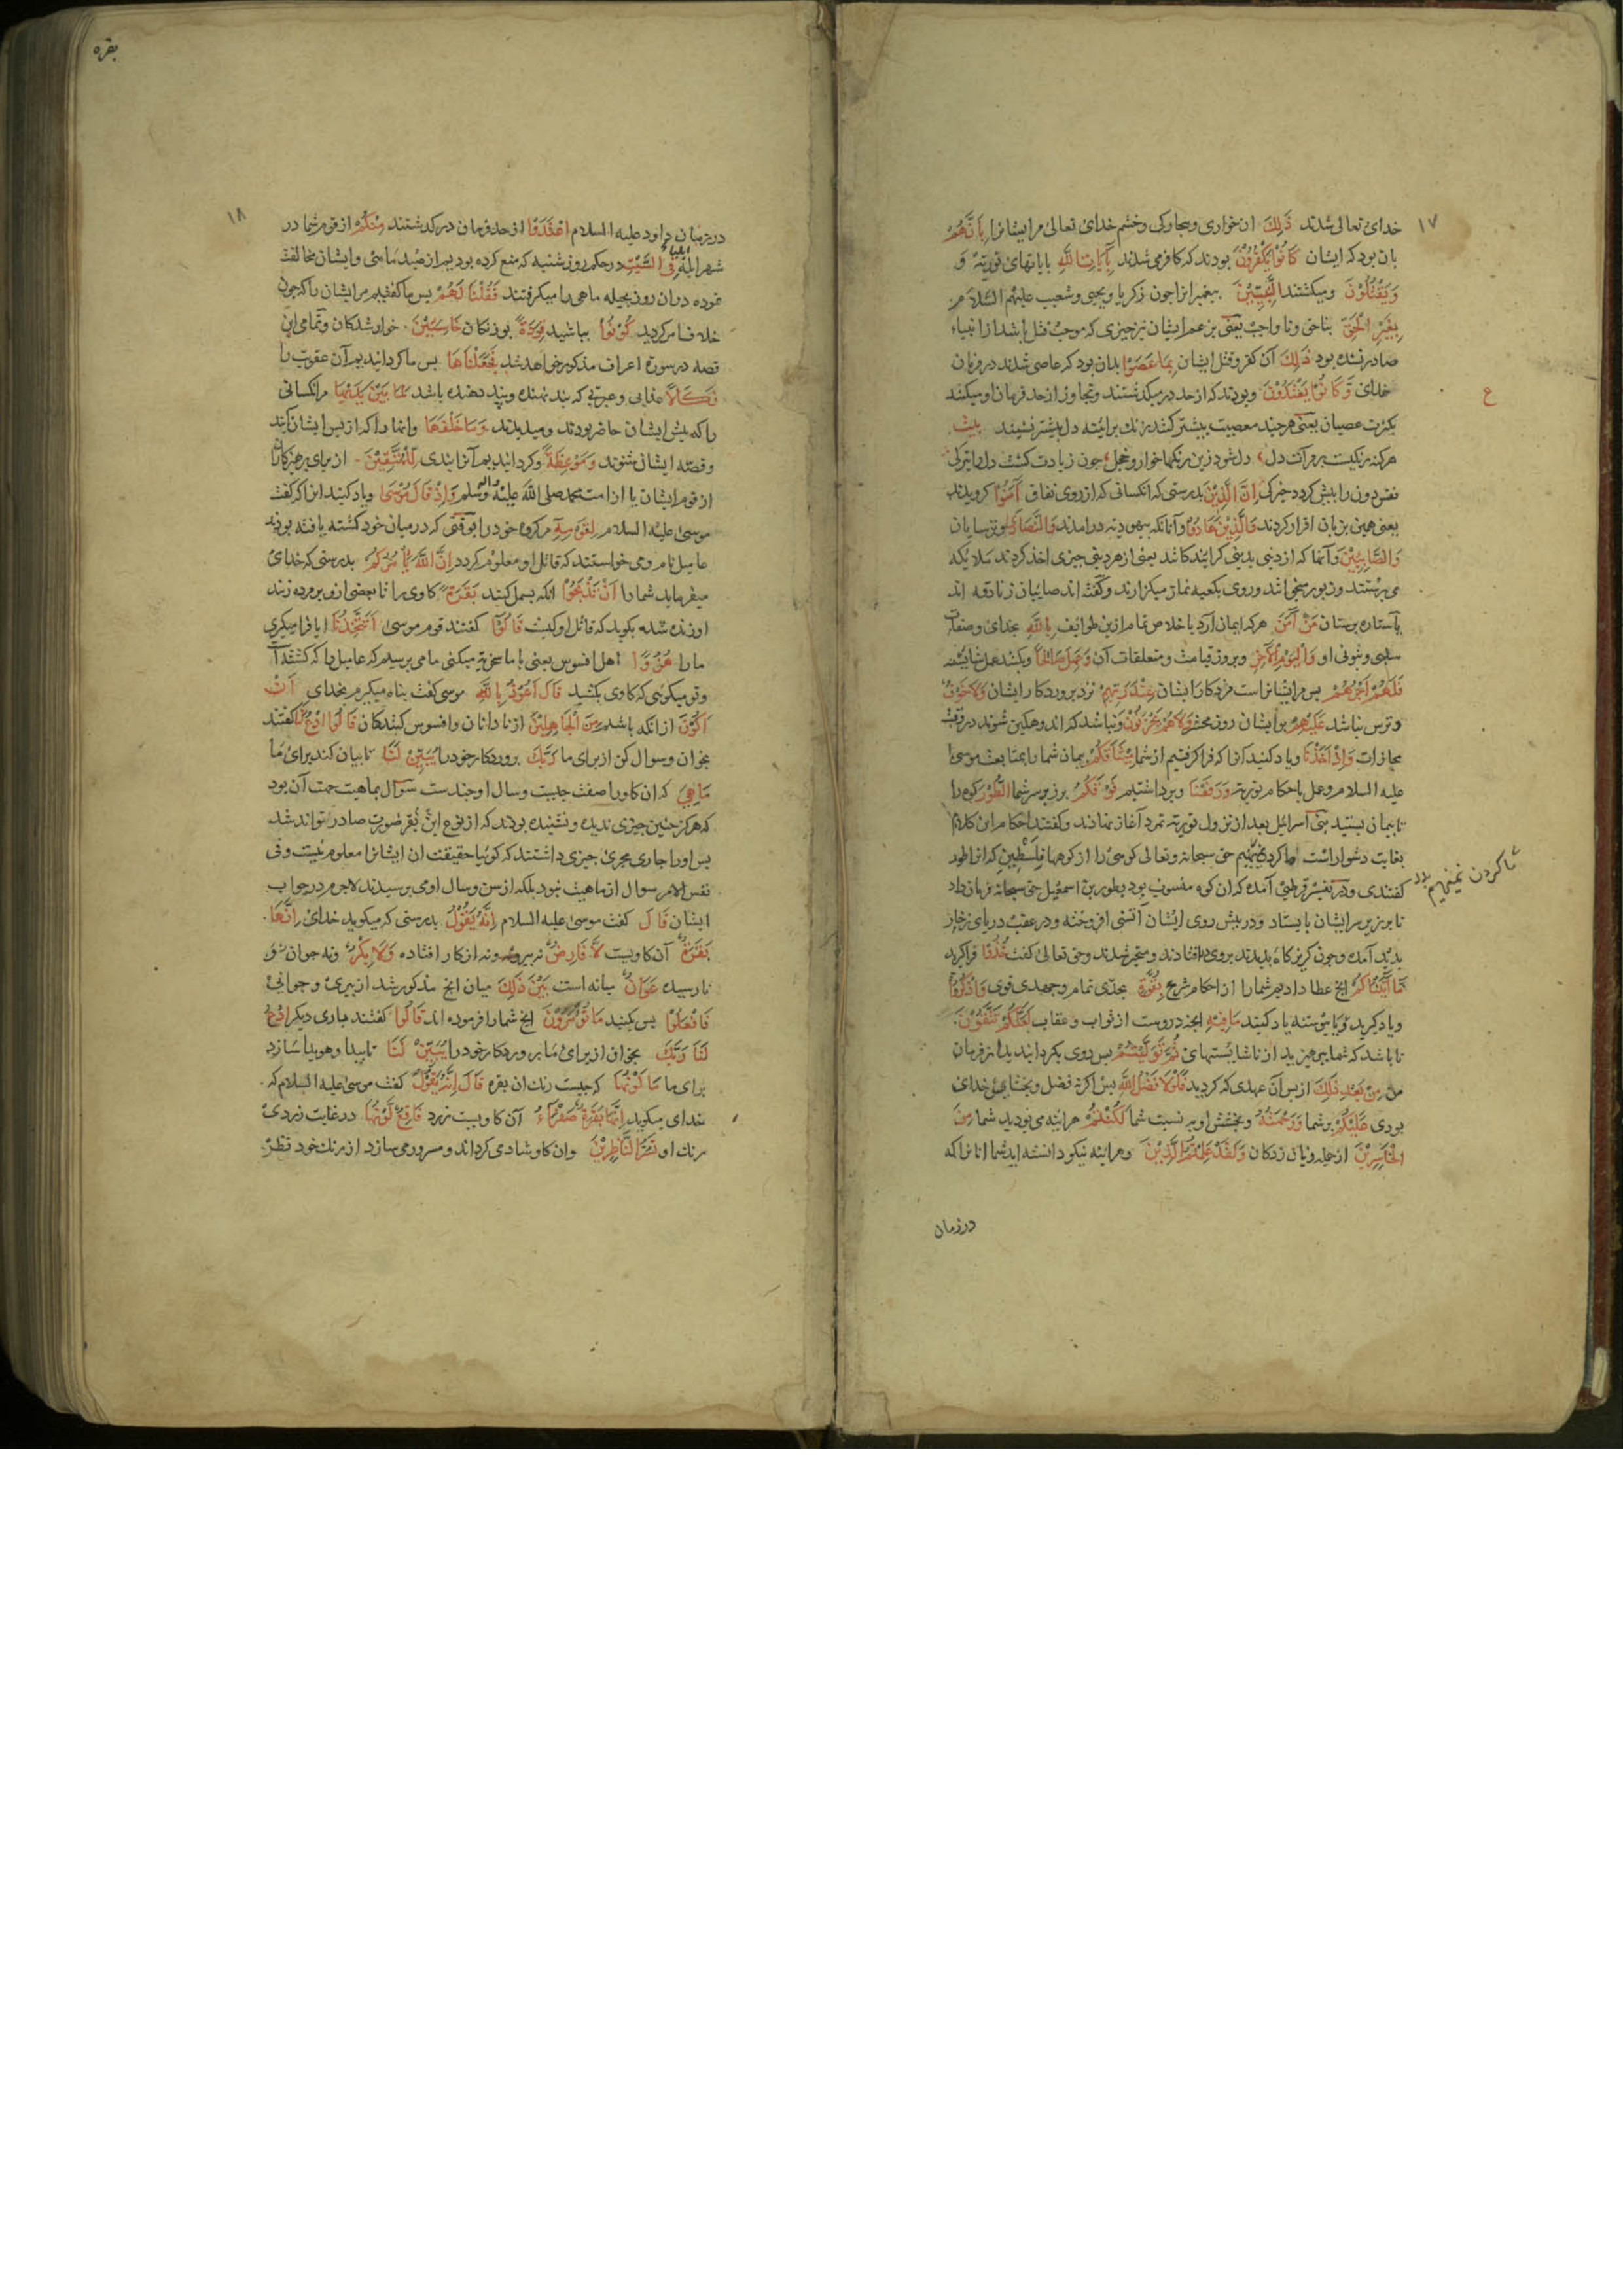 ۱۷
خدای تعالی شدند ذَلِكَ ان خواری و بیچارکی و خشم خدای تعالی مر ایشانرا بِأَنَّهُمْ
بان بود که ایشان كَانُوْا يَكْفُرُوْنَ بودند که کافر می شدند بِآيَاتِ اللّٰهِ بایاتهای توریة و
وَيَقْتُلُوْنَ و میکشتند النَّبِيِّيْنَ پیغمبرانرا جون زکریا و یحیی و شعیب علیهم السلام
بِغَيْرِ الْحَقِّ بناحق و نا واجب یعنی بزعم ایشان نیز چیزی که موجب قتل باشد از انبیاء
صادر نشده بود ذٰلِكَ آن کفر و قتل ایشان بِمَا عَصَوْا بدان بود که عاصی شدند در فرمان
خدای وَّكَانُوْا يَعْتَدُوْنَ و بودند که از حد در میکذشتند و تجاوز از حد فرمان او میکنند
ع
بکثرت عصیان یعنی هرچند معصیت بیشتر کنند زنک بر ائینه دل بیشتر نشیند بیت
هرکنه زنکیست بر مرآت دل دل شود زین زنکها خوار و خجل جون زیادت کشت دل را تیرکی
نفس دون را بیش کردد خیرکی إِنَّ الَّذِيْنَ بدرستی که انکسانی که از روی نفاق آمَنُوْا کرویدند
یعنی همین بزبان اقرار کردند وَالَّذِيْنَ هَادُوْا و آنانکه بیهودیة درامدند وَالنَّصَارَى و ترسایان
وَالصَّابِئِيْنَ و آنها که از دینی بدینی کرائیده اند یعنی از هر دینی چیزی اخذ کردند ملائکه
می پرستند و زبور میخوانند و روی بکعبه نماز میکزارند و کفته اند صابیان زنادقه اند
یا ستاره پرستان مَنْ آمَنَ هرکه ایمان آرد باخلاص تمام ازین طوایف بِاللّٰهِ بخدای و صفات
سلبی و ثبوتی او وَالْيَوْمِ الْآخِرِ و بروز قیامت و متعلقات آن وَعَمِلَ صَالِحًا و بکند عمل شایسته
فَلَهُمْ اَجْرُهُمْ پس مر ایشانراست مزد کار ایشان عِنْدَ رَبِّهِمْ نزد پروردکار ایشان وَلَا خَوْفٌ
و ترس نباشد عَلَيْهِمْ بر ایشان روز محشر وَلَا هُمْ يَحْزَنُوْنَ و نباشد که اندوهکین شوند در وقت
مجازات وَاِذْ اَخَذْنَا و یاد کنید انرا که فرا کرفتیم از شما مِيْثَاقَكُمْ پیمان شما را بمتابعت موسی
علیه السلام و عمل باحکام توریة وَرَفَعْنَا و برداشتیم فَوْقَكُمُ بر زبر سر شما الطُّوْرَ کوه را
تا پیمان بستید بنی اسرائیل بعد از نزول توریة تمرد آغاز نمادند و کفتند احکام این کلام
بغایت دشوار است حق سبحانه و تعالی کوهی را از کوهها فلسطین که انرا طور
کفتندی و در تفسیر قرطبی آمده که ان کوه منسوب بود بطور بن اسمعیل حق سبحانه فرمان داد
تا بر زبر سر ایشان بایستاد و در پیش روی ایشان آتشی افروخته و در عقب دریای زخار
پدید آمده و جون کریزکاه ندیدند بروی درافتادند و متحیر شدند و حق تعالی کفت خُذُوْا فرا کیرید
مَا آتَيْنَاكُمْ انج عطا دادیم شما را از احکام شرع بِقُوَّةٍ بجدی تمام و جهدی قوی وَاذْكُرُوْا
و یاد کرید و پیوسته یاد کنید مَا فِيْهِ انچه دروست از ثواب و عقاب لَعَلَّكُمْ تَتَّقُوْنَ
تا باشد که شما بپرهیزید از ناشایستهای ثُمَّ تَوَلَّيْتُمْ پس روی بکردانیدید از فرمان
من مِنْ بَعْدِ ذٰلِكَ از پس آن عهدی که کردید فَلَوْلَا فَضْلُ اللّٰهِ پس اکر نه فضل و بخشایش خدای
بودی عَلَيْكُمْ بر شما وَرَحْمَتُهُ و بخشش او بنسبت شما لَكُنْتُمْ هراینه می بودید شما مِنَ
الْخَاسِرِيْنَ از جمله زیان زدکان وَلَقَدْ عَلِمْتُمُ الَّذِيْنَ و هراینه نیکو دانسته اید شما انانرا که
در زمان
بقره
۱۸
در زمان داود علیه السلام اعْتَدَوْا از حد فرمان در کذشتند مِنْكُمْ از قوم شما در
شهر ایله فِي السَّبْتِ در حکم روز شنبه که منع کرده بودیم از صید ماهی و ایشان مخالفت
نموده دران روز بحیله ماهی را میکرفتند فَقُلْنَا لَهُمْ پس ما کفتیم مر ایشان را که جون
خلاف امر کردید كُوْنُوْا بباشید قِرَدَةً بوزنکان خَاسِئِيْنَ خوار شدکان و تمامی این
قصه در سوره اعراف مذکور خواهد شد فَجَعَلْنَاهَا پس ما کردانیدیم آن عقوبت را
نَكَالًا عذابی و عبرتی که بند نهنده و پند دهنده باشد لِمَا بَيْنَ يَدَيْهَا مر انکسانی
را که پیش ایشان حاضر بودند و میدیدند وَمَا خَلْفَهَا و انها را که از پس ایشان آیند
و قصه ایشان شنوند وَمَوْعِظَةً و کردانیدیم آنرا پندی لِلْمُتَّقِيْنَ از برای پرهیزکاران
از قوم ایشان یا از امت محمد صلی الله علیه واله وسلم وَاِذْ قَالَ مُوْسَى و یاد کنید انرا که کفت
موسی علیه السلام لِقَوْمِهِ مر کروه خود را بوقتی که در میان خود کشته یافته بودند
عامیل نام و می خواستند که قاتل او معلوم کردد اِنَّ اللّٰهَ يَأْمُرُكُمْ بدرستی که خدای
میفرماید شما را اَنْ تَذْبَحُوْا انکه بسمل کنید بَقَرَةً کاوی را تا بعضی ازو بر مرده زنند
او زنده شده بکوید که قاتل او کیست قَالُوْا کفتند قوم موسی اَتَتَّخِذُنَا ایا فرا میکیری
ما را هُزُوًا اهل افسوس یعنی با ما سخریه میکنی ما می پرسیم که عامیل را که کشته است
و تو میکویی که کاوی بکشید قَالَ اَعُوْذُ بِاللّٰهِ موسی کفت پناه میکیرم بخدای اَنْ
اَكُوْنَ از انکه باشم مِنَ الْجَاهِلِيْنَ از نادانان و افسوس کنندکان قَالُوا ادْعُ لَنَا کفتند
بخوان و سوال کن از برای ما رَبَّكَ پروردکار خود را يُبَيِّنْ لَنَا تا بیان کند برای ما
مَا هِيَ که ان کاو را صفت چیست و سال او چندست سوال بماهیت جهت آن بود
که هرکز چنین چیزی ندیده و نشنیده بودند که از نوع این بقر ضرورت صادر تواند شد
پس او را جاری مجری چیزی داشتند که کوئیا حقیقت ان ایشانرا معلوم نیست و فی
نفس الامر سوال از ماهیت نبود بلکه از سن و سال او می پرسیدند لاجرم در جواب
ایشان قَالَ کفت موسی علیه السلام اِنَّهُ يَقُوْلُ بدرستی که میکوید خدای اِنَّهَا
بَقَرَةٌ آن کاویست لَّا فَارِضٌ نه پیر و نه از کار افتاده وَلَا بِكْرٌ و نه جوان نو
نارسیده عَوَانٌ میانه است بَيْنَ ذَلِكَ میان انج مذکور شد از پیری و جوانی
فَافْعَلُوْا پس بکنید مَا تُؤْمَرُوْنَ انج شما را فرموده اند قَالُوا کفتند باری دیکر ادْعُ
لَنَا رَبَّكَ بخوان از برای ما پروردکار خود را يُبَيِّنْ لَنَا تا پیدا و هویدا سازد
برای ما مَا لَوْنُهَا که چیست رنک ان بقره قَالَ اِنَّهُ يَقُوْلُ کفت موسی علیه السلام که
خدای میکوید اِنَّهَا بَقَرَةٌ صَفْرَاءُ آن کاویست زرد فَاقِعٌ لَوْنُهَا در غایت زردی
رنک او تَسُرُّ النَّاظِرِيْنَ و ان کاو شادی کرداند و مسرور می سازد از رنک خود نظر